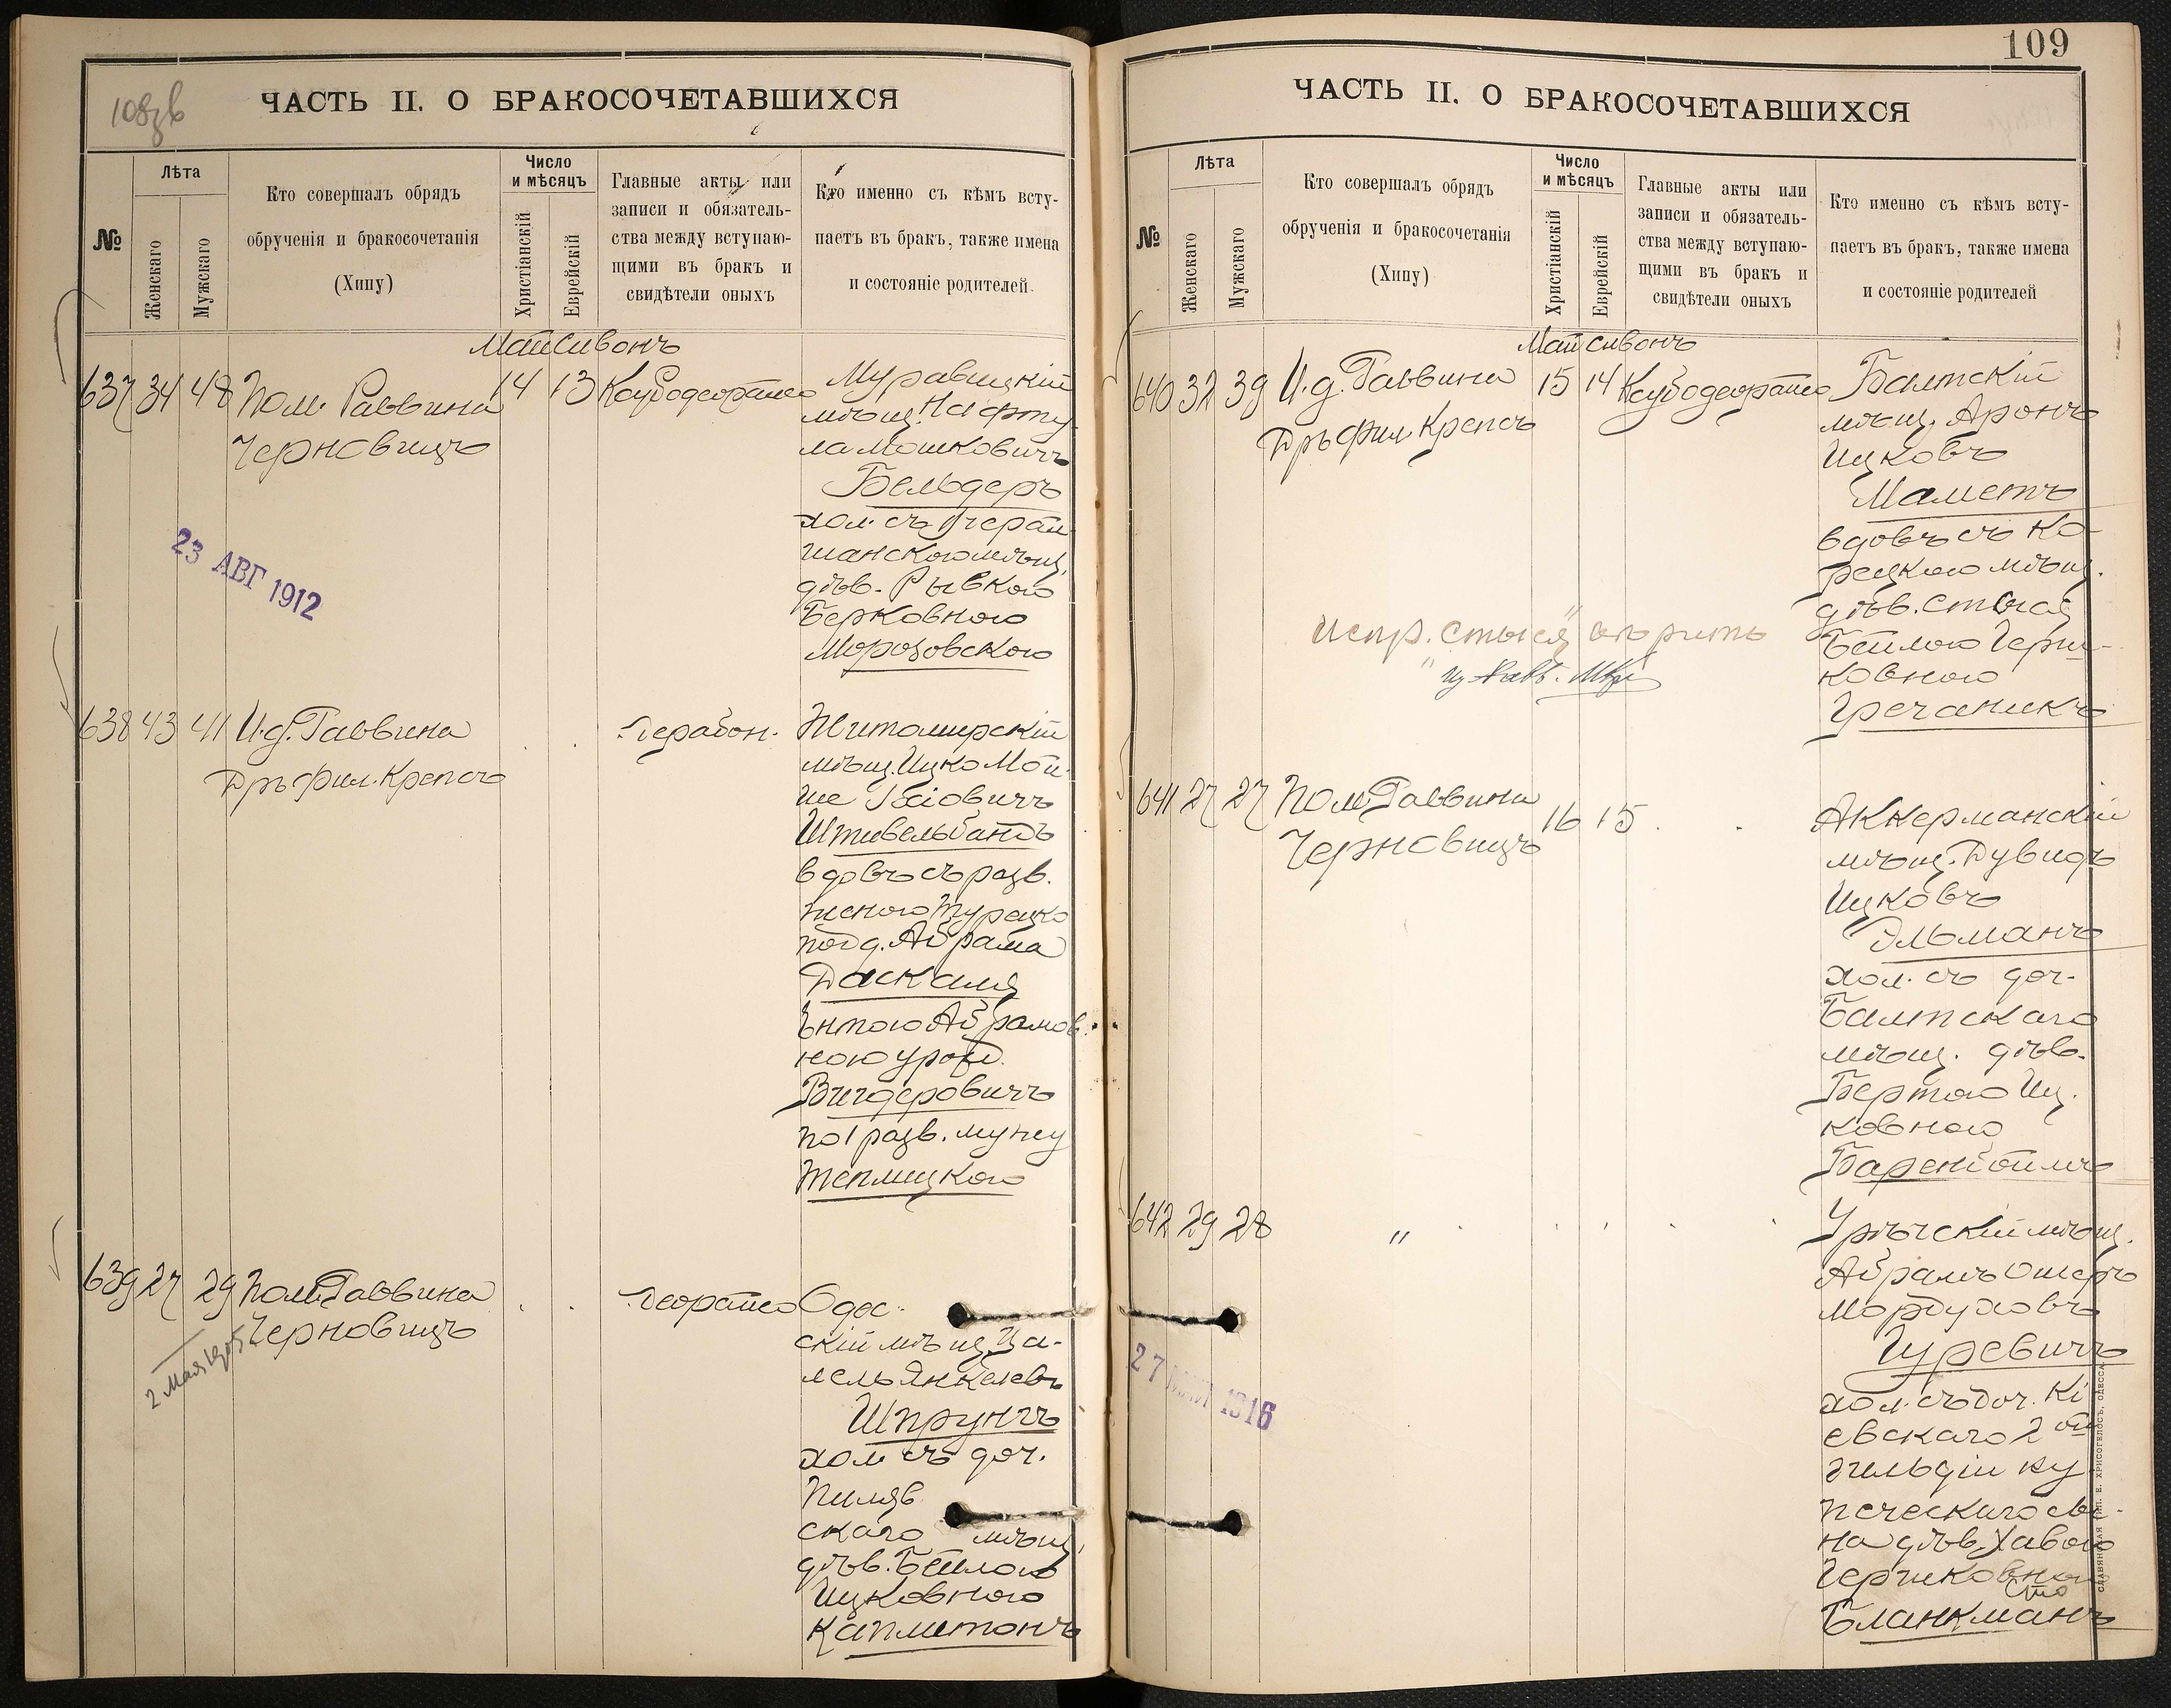 108 зв
ЧАСТЬ II. О БРАКОСОЧЕТАВШИХСЯ
№
Лѣта
Женскаго
Мужскаго
Кто совершалъ обрядъ
обрученія и бракосочетанія
(Хипу)
Число
и мѣсяцъ
Христіанскій
Еврейскій
Главные акты или
записи и обязатель-
ства между вступаю-
щими въ бракъ и
свидѣтели оныхъ
Кто именно съ кѣмъ всту-
паетъ въ бракъ, также имена
и состояніе родителей
Май Сивонъ
637 34 48 Пом. Раввина 14 13
Черновицъ
Муравицкій
мѣщ. Нафту-
ла Мошковичъ
Бельдеръ
хол. съ
дѣв. Рывкою
Берковною
Морозовскою
23 АВГ 1912
638 43 41 И.д. Раввина
Дръ фил. Крепсъ
Житомирскій
мѣщ. Ицко Мой-
ше
Штивельбандъ
вдовъ съ разв.
женою Турецко
подд. Абрама
Даскаля
Энтою Абрамов-
ною урожд.
Вигдеровичъ
по 1 разв. мужу
Теплицкою
639 27 29 Пом. Раввина
Черновицъ
2 Мая
Одес-
скій мѣщ. Ца-
лель Янкелевъ
Шпрунгъ
хол. съ доч.
Пиляв
скаго мѣщ.
дѣв. Бейлою
Ицковною
Каплитонъ
109
ЧАСТЬ II. О БРАКОСОЧЕТАВШИХСЯ
№
Лѣта
Женскаго
Мужскаго
Кто совершалъ обрядъ
обрученія и бракосочетанія
(Хипу)
Число
и мѣсяцъ
Христіанскій
Еврейскій
Главные акты или
записи и обязатель-
ства между вступаю-
щими въ бракъ и
свидѣтели оныхъ
Кто именно съ кѣмъ всту-
паетъ въ бракъ, также имена
и состояніе родителей
Май Сивонъ
640 32 39 И.д. Раввина 15 14
Дръ фил. Крепсъ
Балтскій
мѣщ. Аронъ
Ицковъ
Маметъ
вдовъ съ Ко-
рецкою мѣщ.
дѣв. Стыся
Бейлою Герш-
ковною
Гречаникъ
Испр. „Стыся"
641 27 27 Пом. Раввина 16 15
Черновицъ
Аккерманскій
мѣщ. Дувидъ
Ицковъ
Эльманъ
хол. съ доч.
Балтскаго
мѣщ. дѣв.
Бертою Иц-
ковною
Баренбоймъ
642 29 28 "
мѣщ.
Абрамъ Ошеръ
Мордуховъ
Гуревичъ
хол. съ доч. Кі
евскаго 2 ой
гильдіи ку
печескаго сы-
на дѣв. Хавою
Гершковною
Бланкманъ
27 МАЙ 1916
СЛАВЯНСКАЯ ТИП. Е. ХРИСОГЕЛОСЪ, ОДЕССА